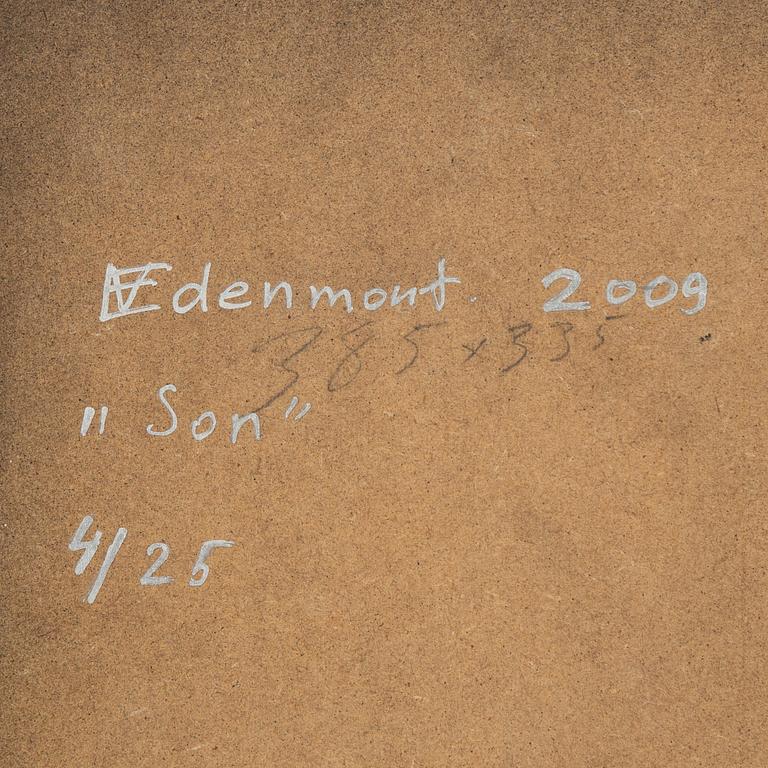 Edenmont. 2009
385 x 335
"Son"
4/25